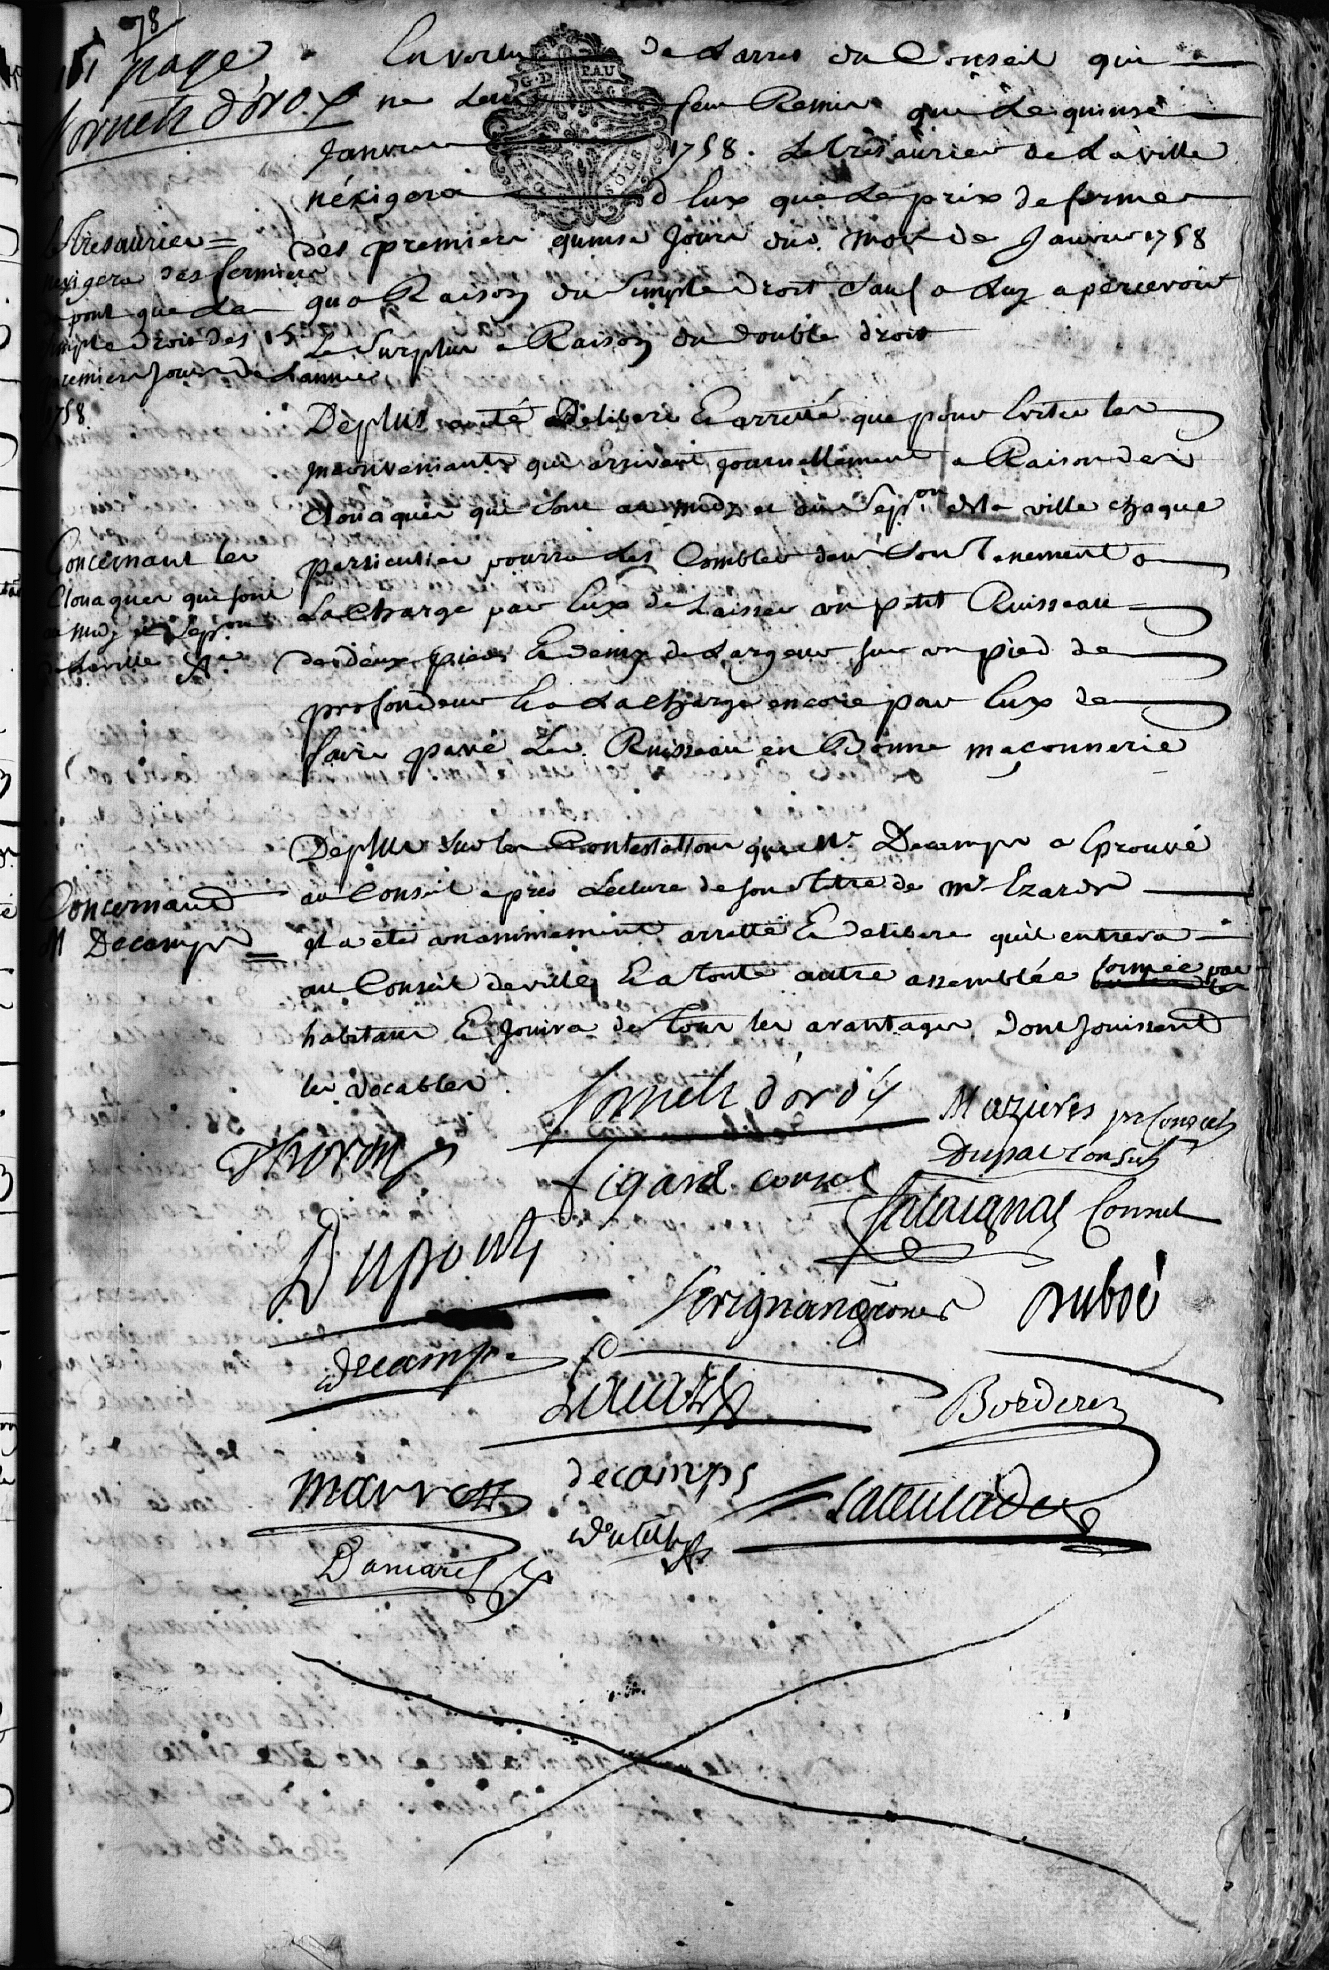 78
151 page
Cornetz d'oroy
En vertu de Larret du Conseil qui
ne leur feu Remis que Le quinse
Janvier 1758. Le trésaurier de La ville
néxigera d Eux que Le prix de ferme
des premiers quinse Jours du. mois de Janvier 1758
qu a Raison du Simple Droit Sauf a Luy a percevoir
Le Surplus a Raison du double droit
le Tresaurier
nexigera des fermiers
du pont que Le
simple droit des 15
premiers Jours de Lannée
1758
Deplus a eté Deliberé Earretté que pour Eviter les
Inconveniants qui arrivent journellement a Raison des
Clouaques qui sont au midy et au Sep.on de la ville chaque
particulier pourra Les Combler dans Son Tenement a
La charge par Eux de Laisser un petit Ruisseau
de deux pieds E demy de Largeur sur un pied de
profondeur Ea La charge encore par Eux de
faire pavé Led. Ruisseau en Bonne maçonnerie
Concernant les
Clouaques qui sont
au midy et Sep.on
de La ville
Deplus Sur les Contestations que Mr. Decamps a Eprouvé
au Conseil apres Lecture de son titre de Mr Ezards
Il a eté unanimement arretté E deliberé quil entrera
au Conseil de ville, Ea toute autre assemblée formée par
habitans E Jouira de tous les avantages dont Jouissent
les vocables
Concernant
M Decamps
Cornetz d'oroy
Mazieres pr Consul
Dupac Consul
Thoron
Figard consul
Lataignat Consul
Dupont
Serignan
Duboé
decamps
Borderes
marrast
decamps
Lacencade
Damaré